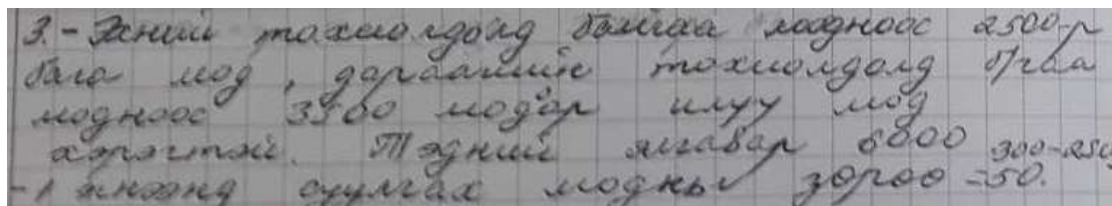 3. - Эхний тохиолдолд байгаа модноос 2500-р
бага мод, дараагийн тохиолдолд б/гаа
модноос 3500 мод'ор илүү мод
хэрэгтэй. Тэдний ялгавар 6000 300-250
-1 эгнээнд суулгах модны зөрөө =50.